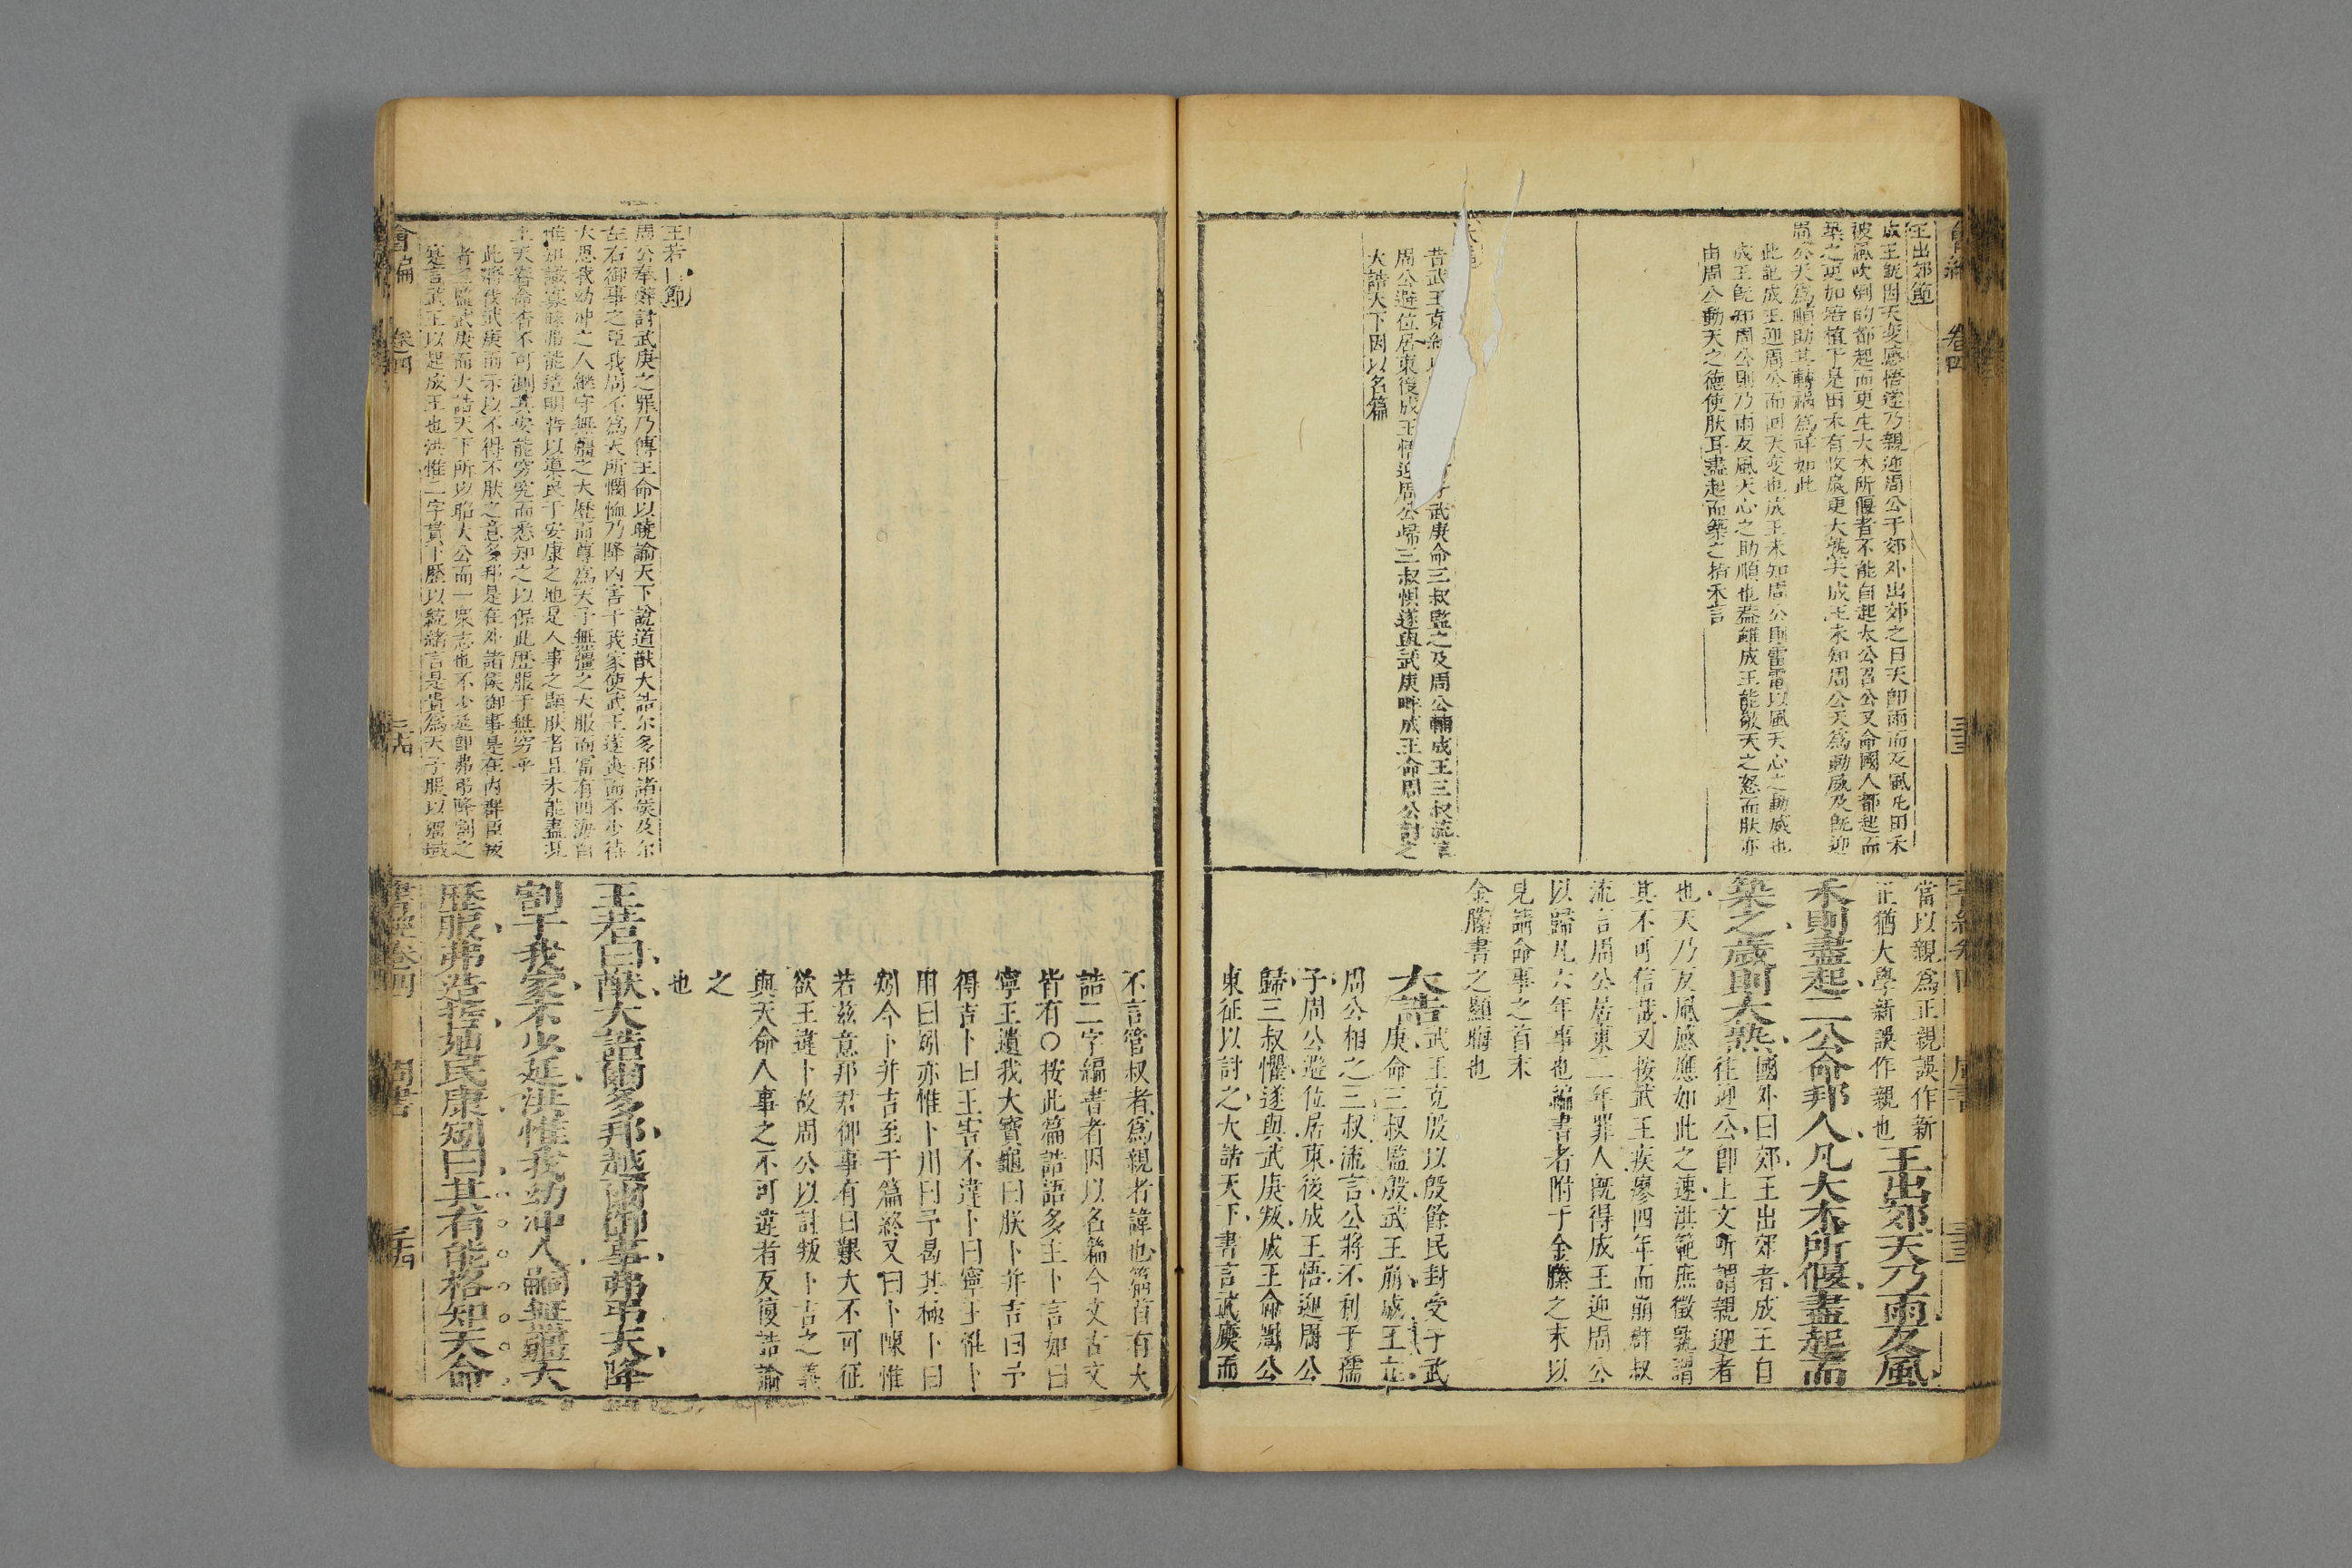 會編 卷四 三三
王出郊節
成王旣因天变感悟遂乃親迎周公于郊外出郊之日天卽雨而反風凡田禾
被風吹倒的都起而更生大木所偃者不能自起太公召公又命國人都起而
築之更加培植于是田禾有收歲更大熟夫成王未知周公天爲動威及旣迎
周公天爲順助其轉禍爲祥如此
此記成王迎周公而囘天变也成王未知周公則雷電以風天心之動威也
成王旣知周公則乃雨反風天心之助順也葢雖成王能敬天之怒而朕亦
由周公動天之德使朕耳盡起而築之指禾言
昔武王克紂以 武庚命三叔監之及周公輔成王三叔流言
周公避位居東後成王悟迎周公歸三叔懼遂與武庚畔成王命周公討之
大誥天下因以名篇
書經卷四 周書 三三
當以親爲正親誤作新
正猶大學新誤作親也 王出郊天乃雨反風
禾則盡起二公命邦人凡大木所偃盡起而
築之歲則大熟 國外曰郊王出郊者成王自
往迎公卽上文所謂親迎者
也天乃反風感應如此之速洪範庶徵孰謂
其不可信哉又按武王疾瘳四年而崩群叔
流言周公居東二年罪人旣得成王迎周公
以歸凡六年事也編書者附于金縢之末以
見請命事之首末
金縢書之顯晦也
大誥 武王克殷以殷餘民封受子武
庚命三叔監殷武王崩成王立
周公相之三叔流言公將不利于孺
子周公避位居東後成王悟迎周公
歸三叔懼遂與武庚叛成王命周公
東征以討之大誥天下書言武庚而
王若曰節
周公奉辭討武庚之罪乃傳王命以曉諭天下說道猷大誥尔多邦諸侯及尔
左右御事之臣我周不爲天所憫恤乃降凶害于我家使武王遂喪而不少待
大思我幼冲之人継守無疆之大歷而尊爲天子無疆之大服而富有四海自
惟知識寡昧弗能造明哲以導民于安康之地是人事之顯朕者且未能盡況
上天眷命杳不可測其安能窮究而悉知之以保此歷服于無窮乎
此將伐武庚而示以不得不朕之意多邦是在外諸侯御事是在内群臣叛
者三監武庚而大誥天下所以昭大公而一衆志也不少延卽弗弔降割之
寔言武王以起成王也洪惟二字貫下歷以統緒言是貴爲天子服以疆域
會編 卷四 三四
不言管叔者爲親者諱也篇首有大
誥二字編書者因以名篇今文古文
皆有○按此篇誥語多主卜言如曰
寧王遺我大寶龜曰朕卜并吉曰予
得吉卜曰王害不違卜曰寧王惟卜
用曰矧亦惟卜用曰予曷其極卜曰
矧今卜并吉至于篇終又曰卜陳惟
若茲意邦君御事有曰艱大不可征
欲王違卜故周公以討叛卜吉之義
與天命人事之不可違者反復誥諭
之
也
王若曰猷大誥爾多邦越爾御事弗弔天降
割于我家不少延洪惟我幼冲人嗣無疆大
歷服弗造哲廸民康矧曰其有能格知天命
書經卷四 周書 三四